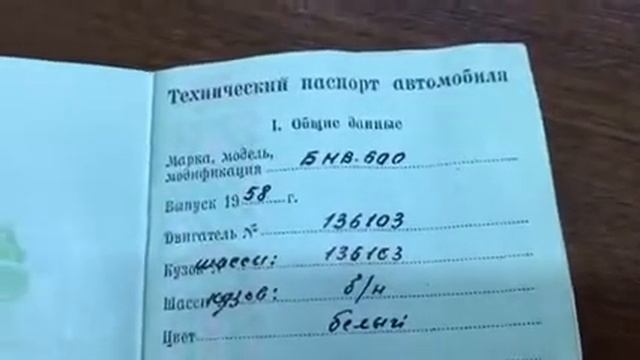 Технический паспорт автомобиля
I. Общие данные
Марка, модель,
модификация БМВ-600
Выпуск 1958 г.
Двигатель № 136103
Кузов шасси: 136103
Шасси кузов: б/н
Цвет белый